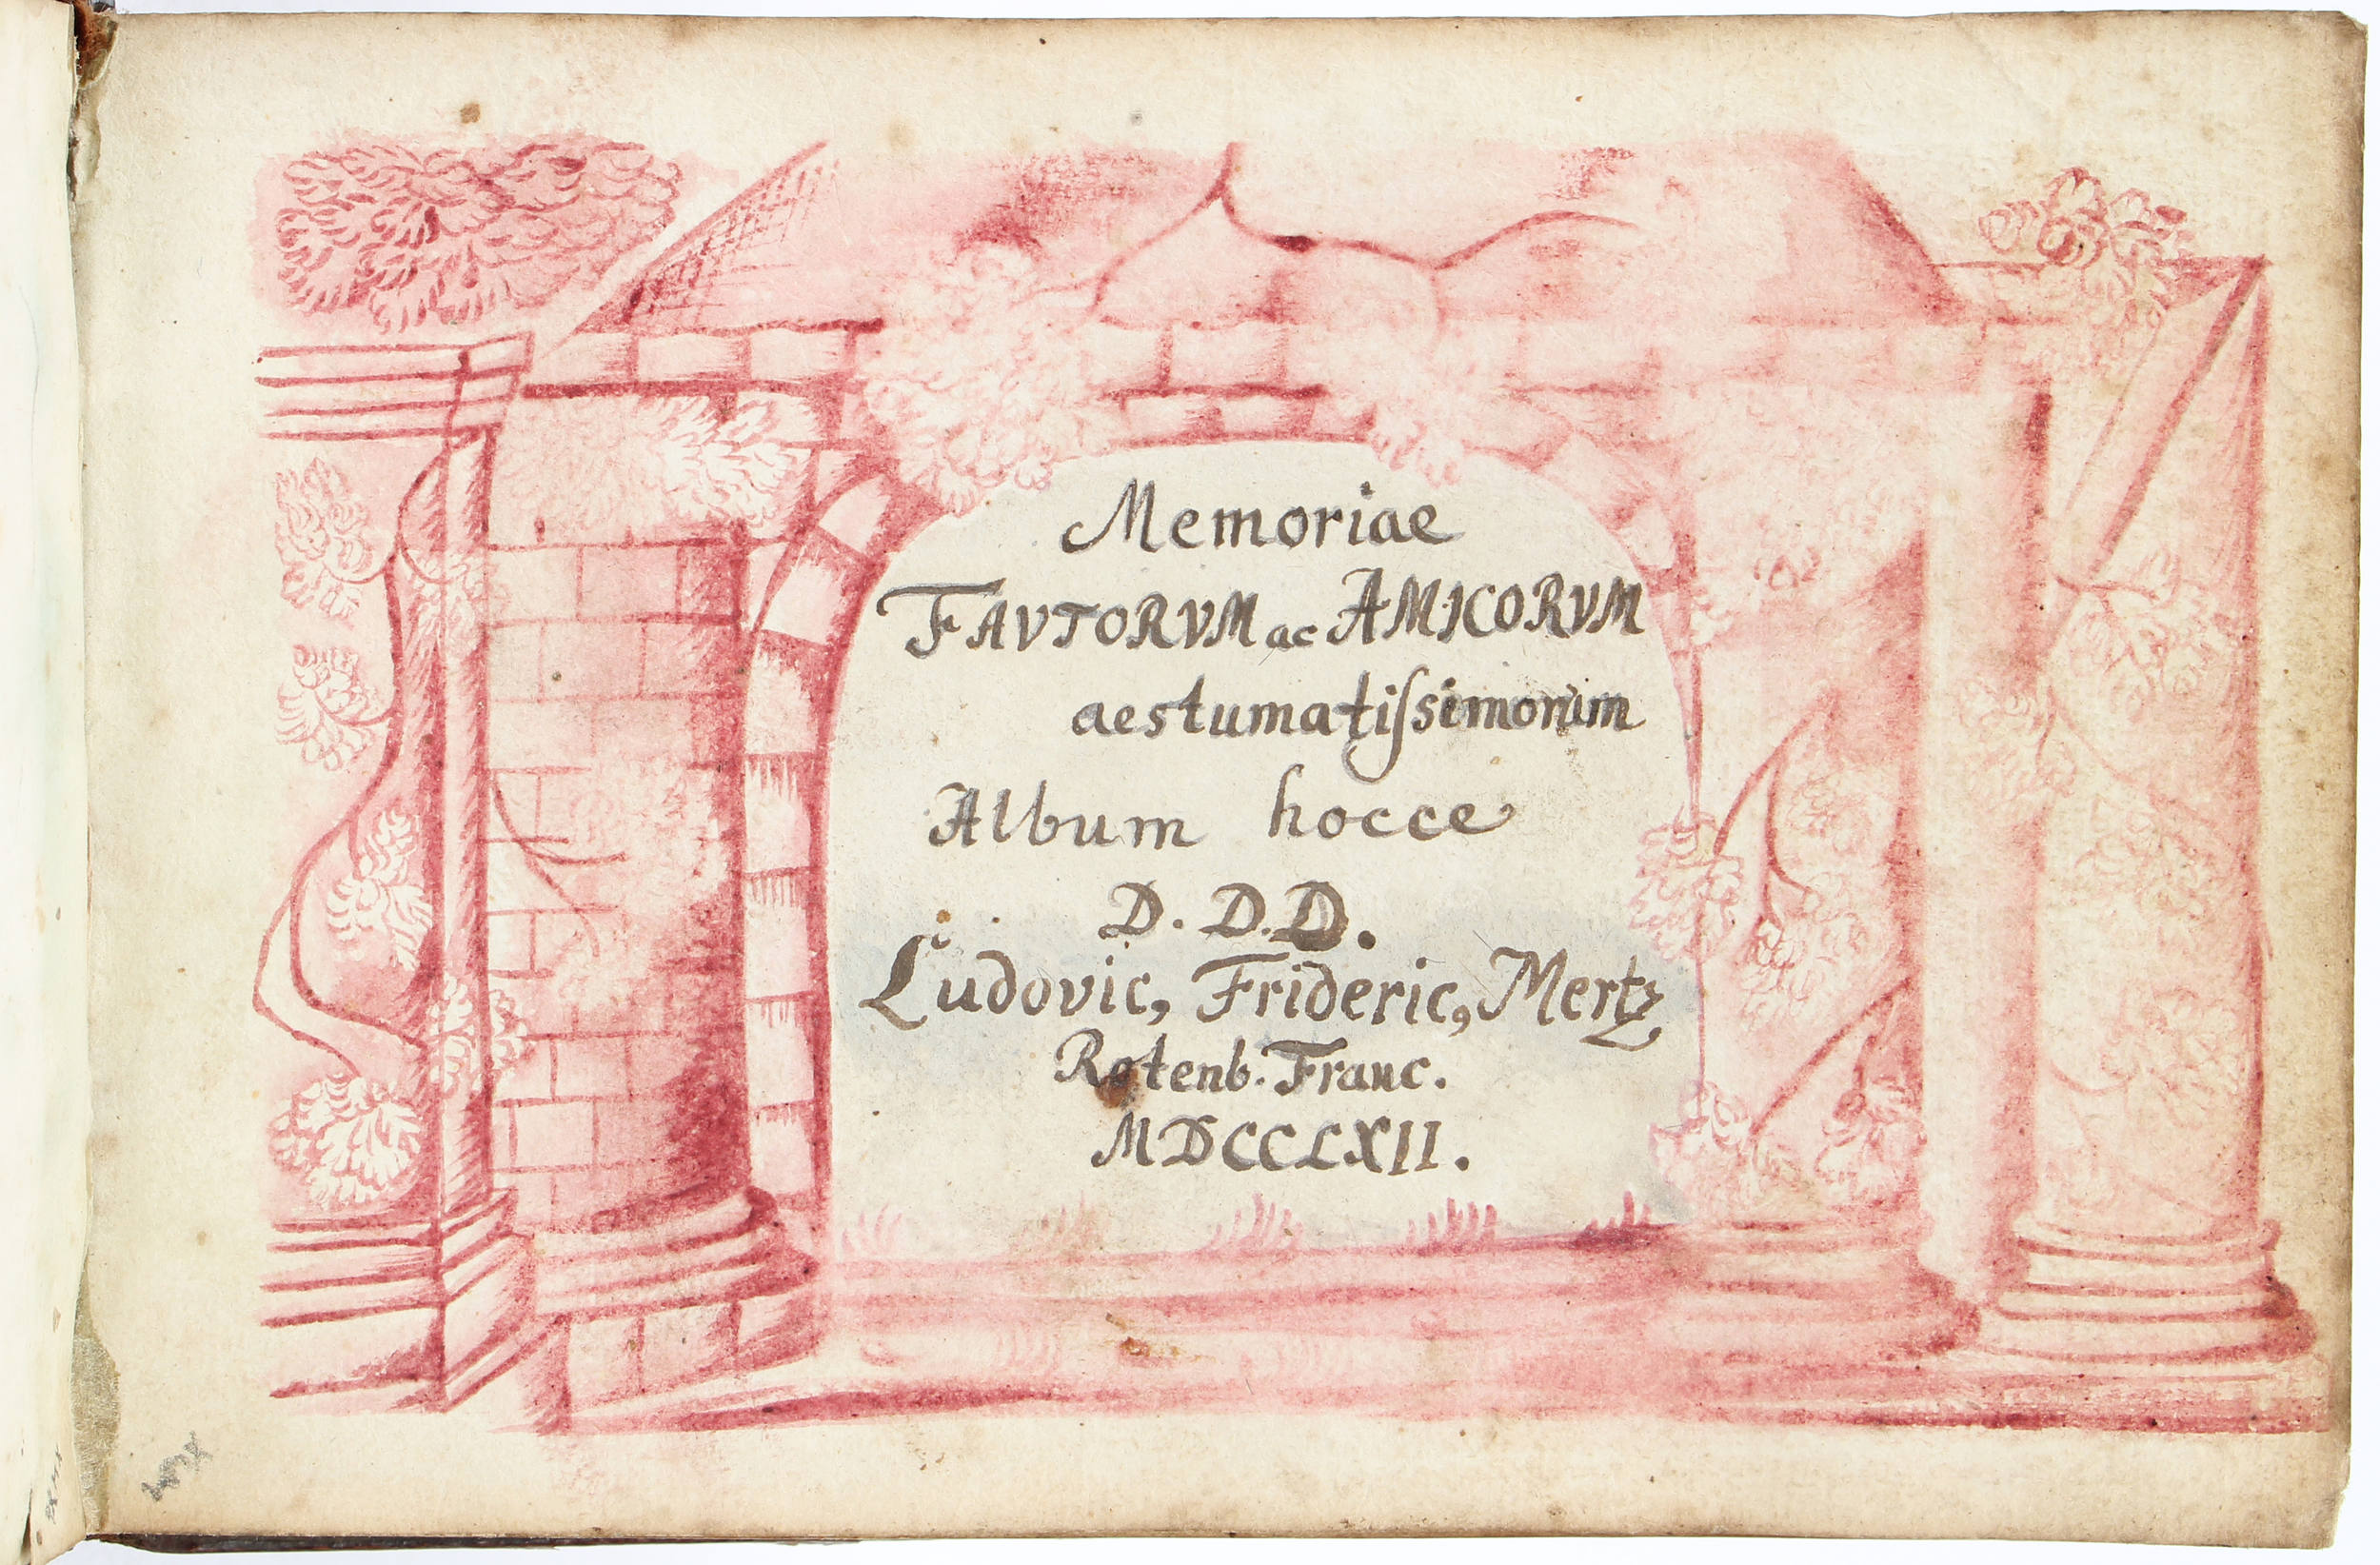 Memoriae
FAVTORVM ac AMICORVM
aestumatiſsimorum
Album hocce
D. D. D.
Ludovic, Frideric, Mertz
Rotenb. Franc.
MDCCLXII.